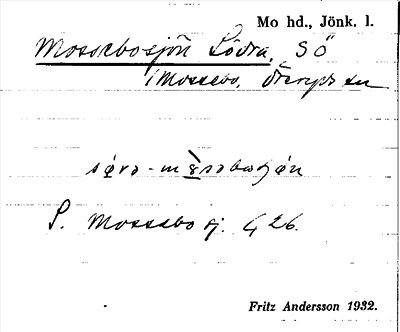 Mo hd., Jönk. l.
Mossebosjön Södra, SÖ
i Mossebo, Öreryds sn
S. Mossebo sj. G 26.
Fritz Andersson 1932.